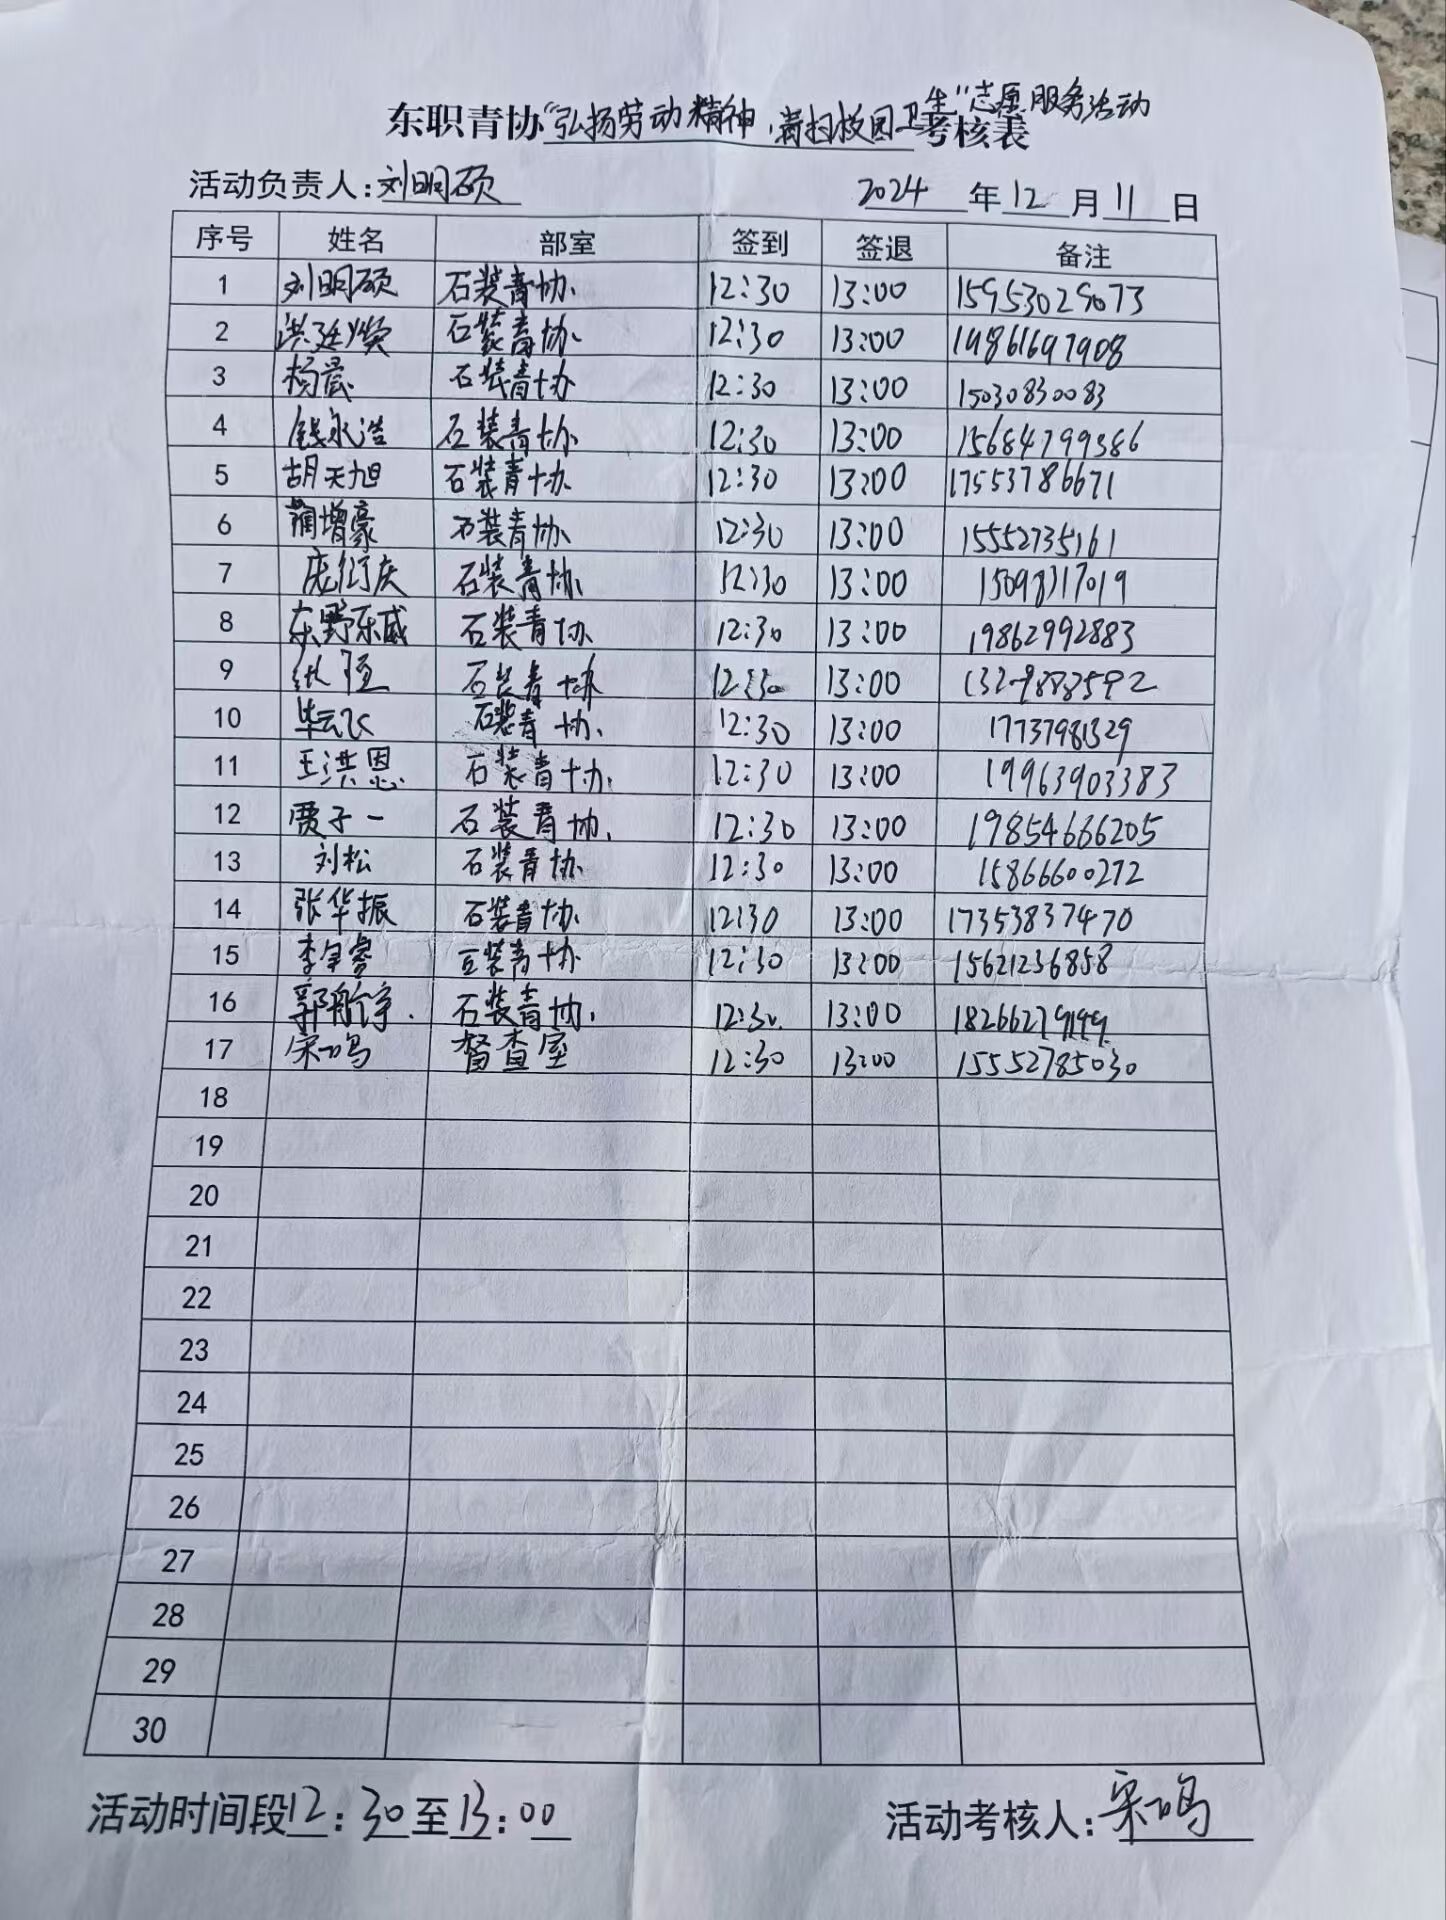 东职青协“弘扬劳动精神，清扫校园卫生”志愿服务活动考核表
活动负责人:刘明硕 2024年12月11日
序号 姓名 部室 签到 签退 备注
1 刘明硕 石装青协 12:30 13:00 15953029073
2 洪廷焕 石装青协 12:30 13:00 19861697908
3 杨 石装青协 12:30 13:00 15030830083
4 钱永浩 石装青协 12:30 13:00 15684799386
5 胡天旭 石装青协 12:30 13:00 17553786671
6 蔺增豪 石装青协 12:30 13:00 15552735161
7 庞衍庆 石装青协 12:30 13:00 15098317019
8 东野东威 石装青协 12:30 13:00 19862992883
9 石装青协 12:30 13:00
10 毕云飞 石装青协 12:30 13:00 17737981329
11 王洪恩 石装青协 12:30 13:00 19963903383
12 贾子一 石装青协 12:30 13:00 19854666205
13 刘松 石装青协 12:30 13:00 15866600272
14 张华振 石装青协 12:30 13:00 17353837470
15 李 装青协 12:30 13:00 15621236858
16 郭航宇 石装青协 12:30 13:00 18266279199
17 宋鸣 督查室 12:30 13:00 15552785030
18
19
20
21
22
23
24
25
26
27
28
29
30
活动时间段12:30至13:00 活动考核人:宋鸣